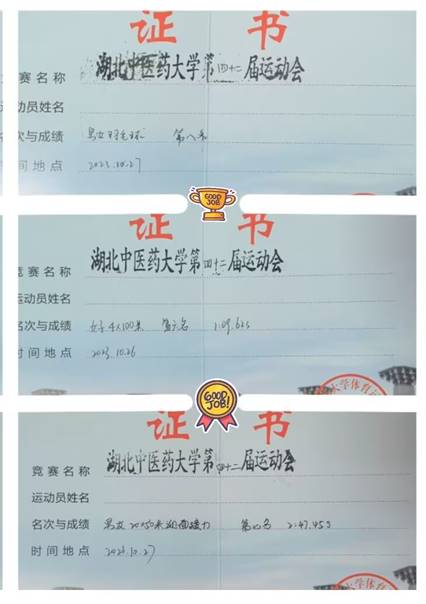 证 书
赛名称 湖北中医药大学第四十二届运动会
动员姓名
次与成绩 男女羽毛球 第八名
间地点 2023.10.27
GOOD JOB
证 书
竞赛名称 湖北中医药大学第四十二届运动会
运动员姓名
名次与成绩 女子4×100米 第六名 1:09.62s
时间地点 2023.10.26
大学体育
GOOD JOB!
证 书
竞赛名称 湖北中医药大学第四十二届运动会
运动员姓名
名次与成绩 男女20×50米迎面接力 第四名 2:47.45s
时间地点 2023.10.27